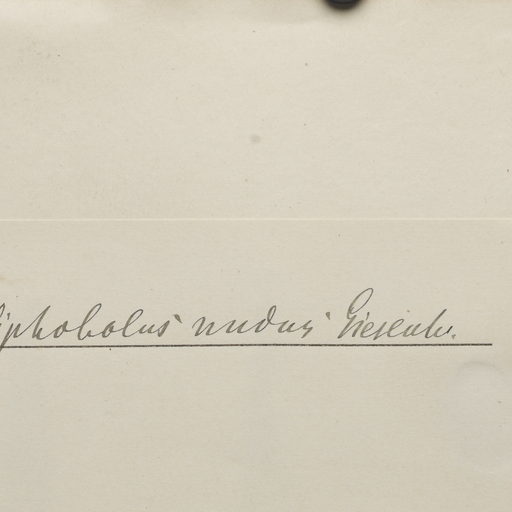 iphobolus nudus Giesenh.